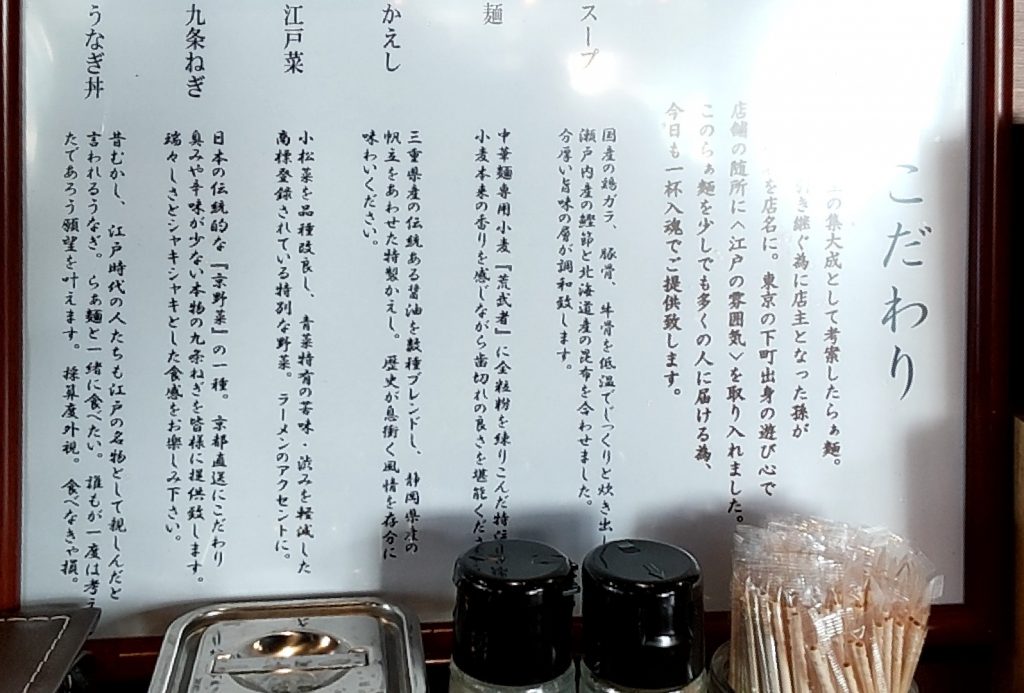 こだわり
の集大成として考案したらぁ麺。
き継ぐ為に店主となった孫が
を店名に。東京の下町出身の遊び心で
店舗の随所に〈江戸の雰囲気〉を取り入れました。
このらぁ麺を少しでも多くの人に届ける為、
今日も一杯入魂でご提供致します。
スープ
国産の鶏ガラ、豚骨、牛骨を低温でじっくりと炊き出し
瀬戸内産の鰹節と北海道産の昆布を合わせました。
分厚い旨味の層が調和致します。
麺
中華麺専用小麦『荒武者』に全粒粉を練りこんだ特注
小麦本来の香りを感じながら歯切れの良さを堪能くださ
かえし
三重県産の伝統ある醤油を数種ブレンドし、静岡県産の
帆立をあわせた特製かえし。歴史が息衝く風情を存分に
味わいください。
江戸菜
小松菜を品種改良し、青菜特有の苦味・渋みを軽減した
商標登録されている特別な野菜。ラーメンのアクセントに。
九条ねぎ
日本の伝統的な『京野菜』の一種。京都直送にこだわり
臭みや辛味が少ない本物の九条ねぎを皆様に提供致します。
瑞々しさとシャキシャキとした食感をお楽しみ下さい。
うなぎ丼
昔むかし、江戸時代の人たちも江戸の名物として親しんだと
言われるうなぎ。らぁ麺と一緒に食べたい。誰もが一度は考え
たであろう願望を叶えます。採算度外視。食べなきゃ損。